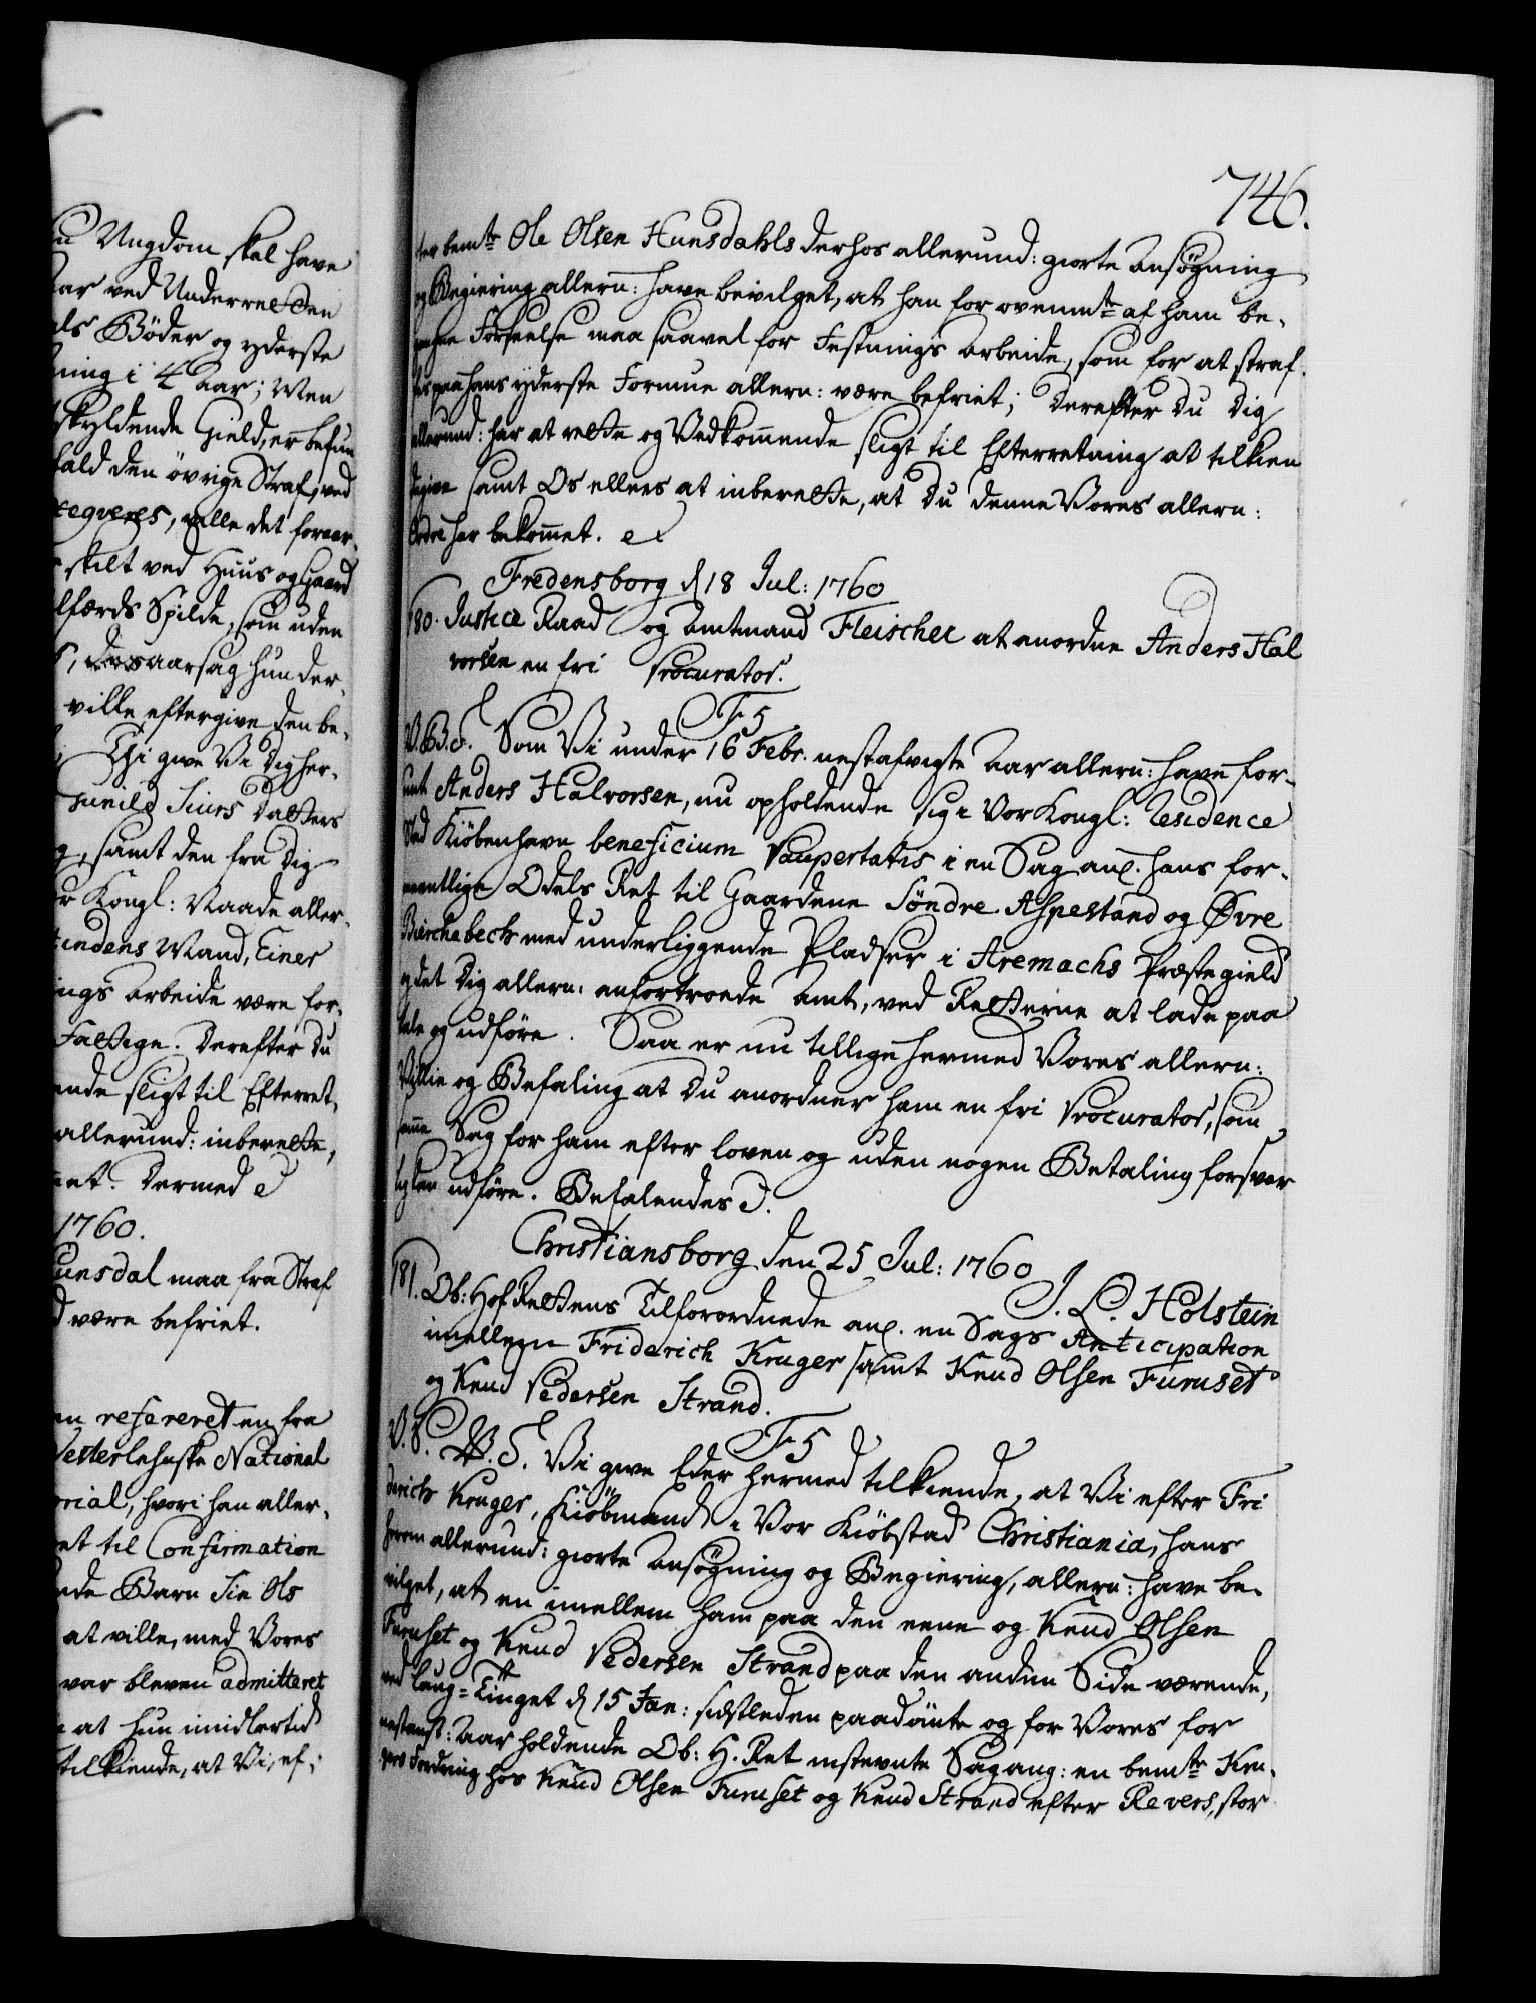 u Ungdom skal have
Aar ved Underretten
als Bøder og yderste
ning i 4 Aar; Men
skyldende Gield, er befun
fald den øvrige Straf, ved
exeqveres, ville det foraar-
skilt ved Huus og Gaard
lfærds Spilde, som uden
Aarsag hun der-
ville eftergive den be-
Thi give Vi Dig her-
Gunild Siurs Datters
g, samt den fra Dig
r Kongl: Naade aller-
indens Mand, Einer
ings Arbeide være for-
Fattige. Derefter Du
ende sligt til Efterret-
allerund: inberette,
met. Dermed
1760.
unsdal maa fra Straf
d være befriet.
en refereret en fra
Vesterlehnske National
orial, hvori han aller-
et til Confirmation
nde Barn Sie Ols
at ville, med Vores
var bleven admitteret
at hun imidlertid
tilkiende, at Vi, ef:
746.
ter bemte Ole Olsen Hunsdahls derhos allerund: giorte Ansøgning
og Begiering allern: have bevilget, at han for ovenmte af ham be-
gangne Forseelse maa saavel for Festnings Arbeide, som for at straf-
fes paa hans yderste Formue allern: være befriet; Derefter Du Dig
allerund: har at rette og Vedkommende sligt til Efterretning at tilkien
degive samt Os ellers at inberette, at Du denne Vores allern:
Ordre har bekommet.
Fredensborg d 18 Jul: 1760
180. Justice Raad og Amtmand Fleischer at anordne Anders Hal
vorsen en fri Procurator.
F5
V. G. T. Som Vi under 16 Febr. nestafvigte Aar allern: have for-
undt Anders Halvorsen, nu opholdende sig i Vor Kongl: Residence
Stad Kiøbenhavn beneficium Paupertatis i en Sag anl. hans for-
mentlige Odels Ret til Gaardene Søndre Aspestand og Øvre
Bierchebech med underliggende Pladser i Aremachs Præstegield
og det Dig allern: anfortroede Amt, ved Retterne at lade paa
tale og udføre. Saa er nu tillige hermed Vores allern:
Villie og Befaling at Du anordner ham en fri Procurator, som
samme Sag for ham efter loven og uden nogen Betaling forsvar
ligen udføre. Befalendes
Christiansborg den 25 Jul: 1760
J. L. Holstein
181. Ob: Hof Rettens Tilforordnede anl. en Sags Anticipation
imellem Friderich Kruger samt Knud Olsen Furuset
og Knud Pedersen Strand.
F5
V. G. T. Vi give Eder hermed tilkiende, at Vi efter Fri
derich Kruger, Kiøbmand i Vor Kiøbstad Christiania, hans
herom allerund: giorte Ansøgning og Begiering, allern: have be-
vilget, at en imellem ham paa den eene og Knud Olsen
Furuset og Knud Pedersen Strand paa den anden Side værende,
ved Laug-Tinget d 15 Jan: sidstleden paadømte og for Vores for
nestanst: Aar holdende Ob: H. Ret instevnte Sag ang: en bemte Kru-
gers Fordring hos Knud Olsen Furuset og Knud Strand efter Revers, stor